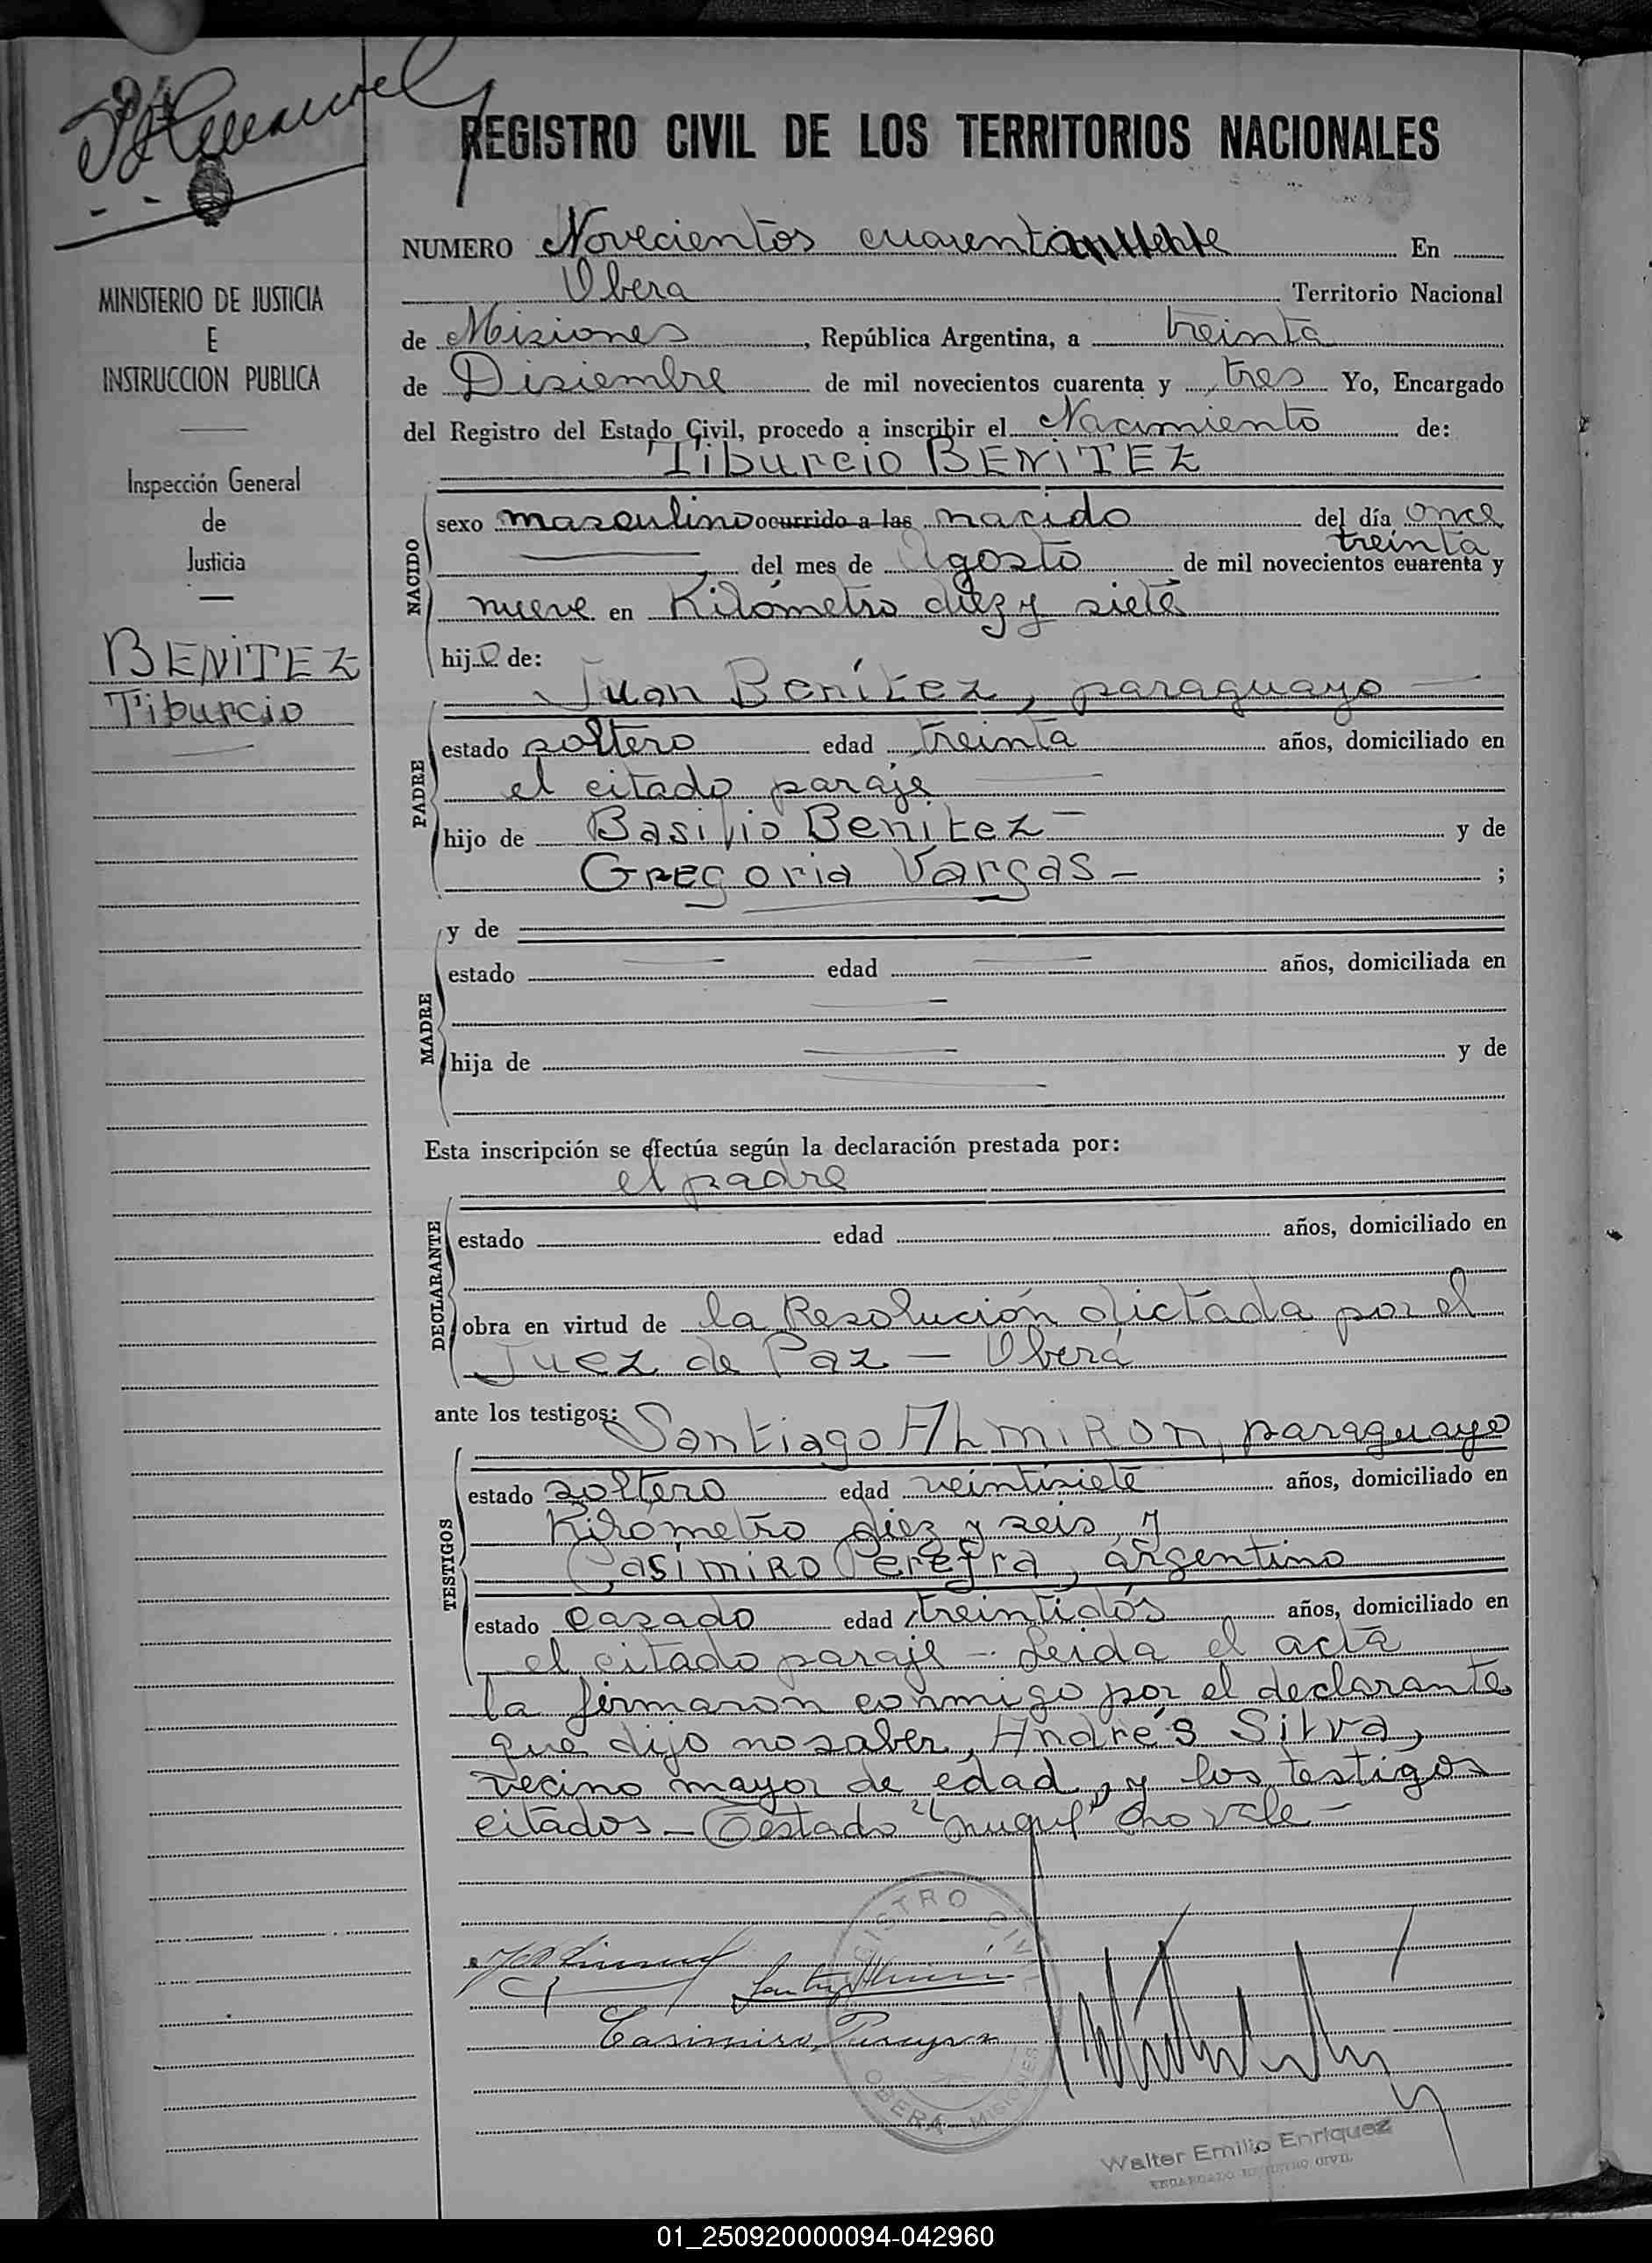 REGISTRO CIVIL DE LOS TERRITORIOS NACIONALES
MINISTERIO DE JUSTICIA
E
INSTRUCCION PUBLICA
Inspección General
de
Justicia
BENITEZ
Tiburcio
NUMERO Novecientos cuarenta En
Obera Territorio Nacional
de Misiones, República Argentina, a treinta
de Disiembre de mil novecientos cuarenta y tres Yo, Encargado
del Registro del Estado Civil, procedo a inscribir el Nacimiento de:
Tiburcio BENITEZ
NACIDO
sexo masculino ocurrido a las nacido del día once
treinta
del mes de Agosto de mil novecientos cuarenta y
nueve en Kilómetro diez y siete
hijo de:
Juan Benítez, paraguayo
PADRE
estado soltero edad treinta años, domiciliado en
el citado paraje
hijo de Basilio Benitez y de
Gregoria Vargas - ;
MADRE
y de
estado edad años, domiciliada en
hija de y de
Esta inscripción se efectúa según la declaración prestada por:
el padre
DECLARANTE
estado edad años, domiciliado en
obra en virtud de la Resolución dictada por el
Juez de Paz - Oberá
ante los testigos:
Santiago ALMIRON, paraguayo
TESTIGOS
estado soltero edad veintisiete años, domiciliado en
Kilómetro diez y seis y
Casimiro Pereyra, argentino
estado casado edad treintidós años, domiciliado en
el citado paraje - Leida el acta
la firmaron conmigo por el declarante
que dijo no saber, Andrés Silva,
vecino mayor de edad, y los testigos
citados - Testado no vale -
Casimiro Pereyra
REGISTRO CIVIL
OBERÁ - MISIONES
Walter Emilio Enriquez
ENCARGADO REGISTRO CIVIL
01_250920000094-042960